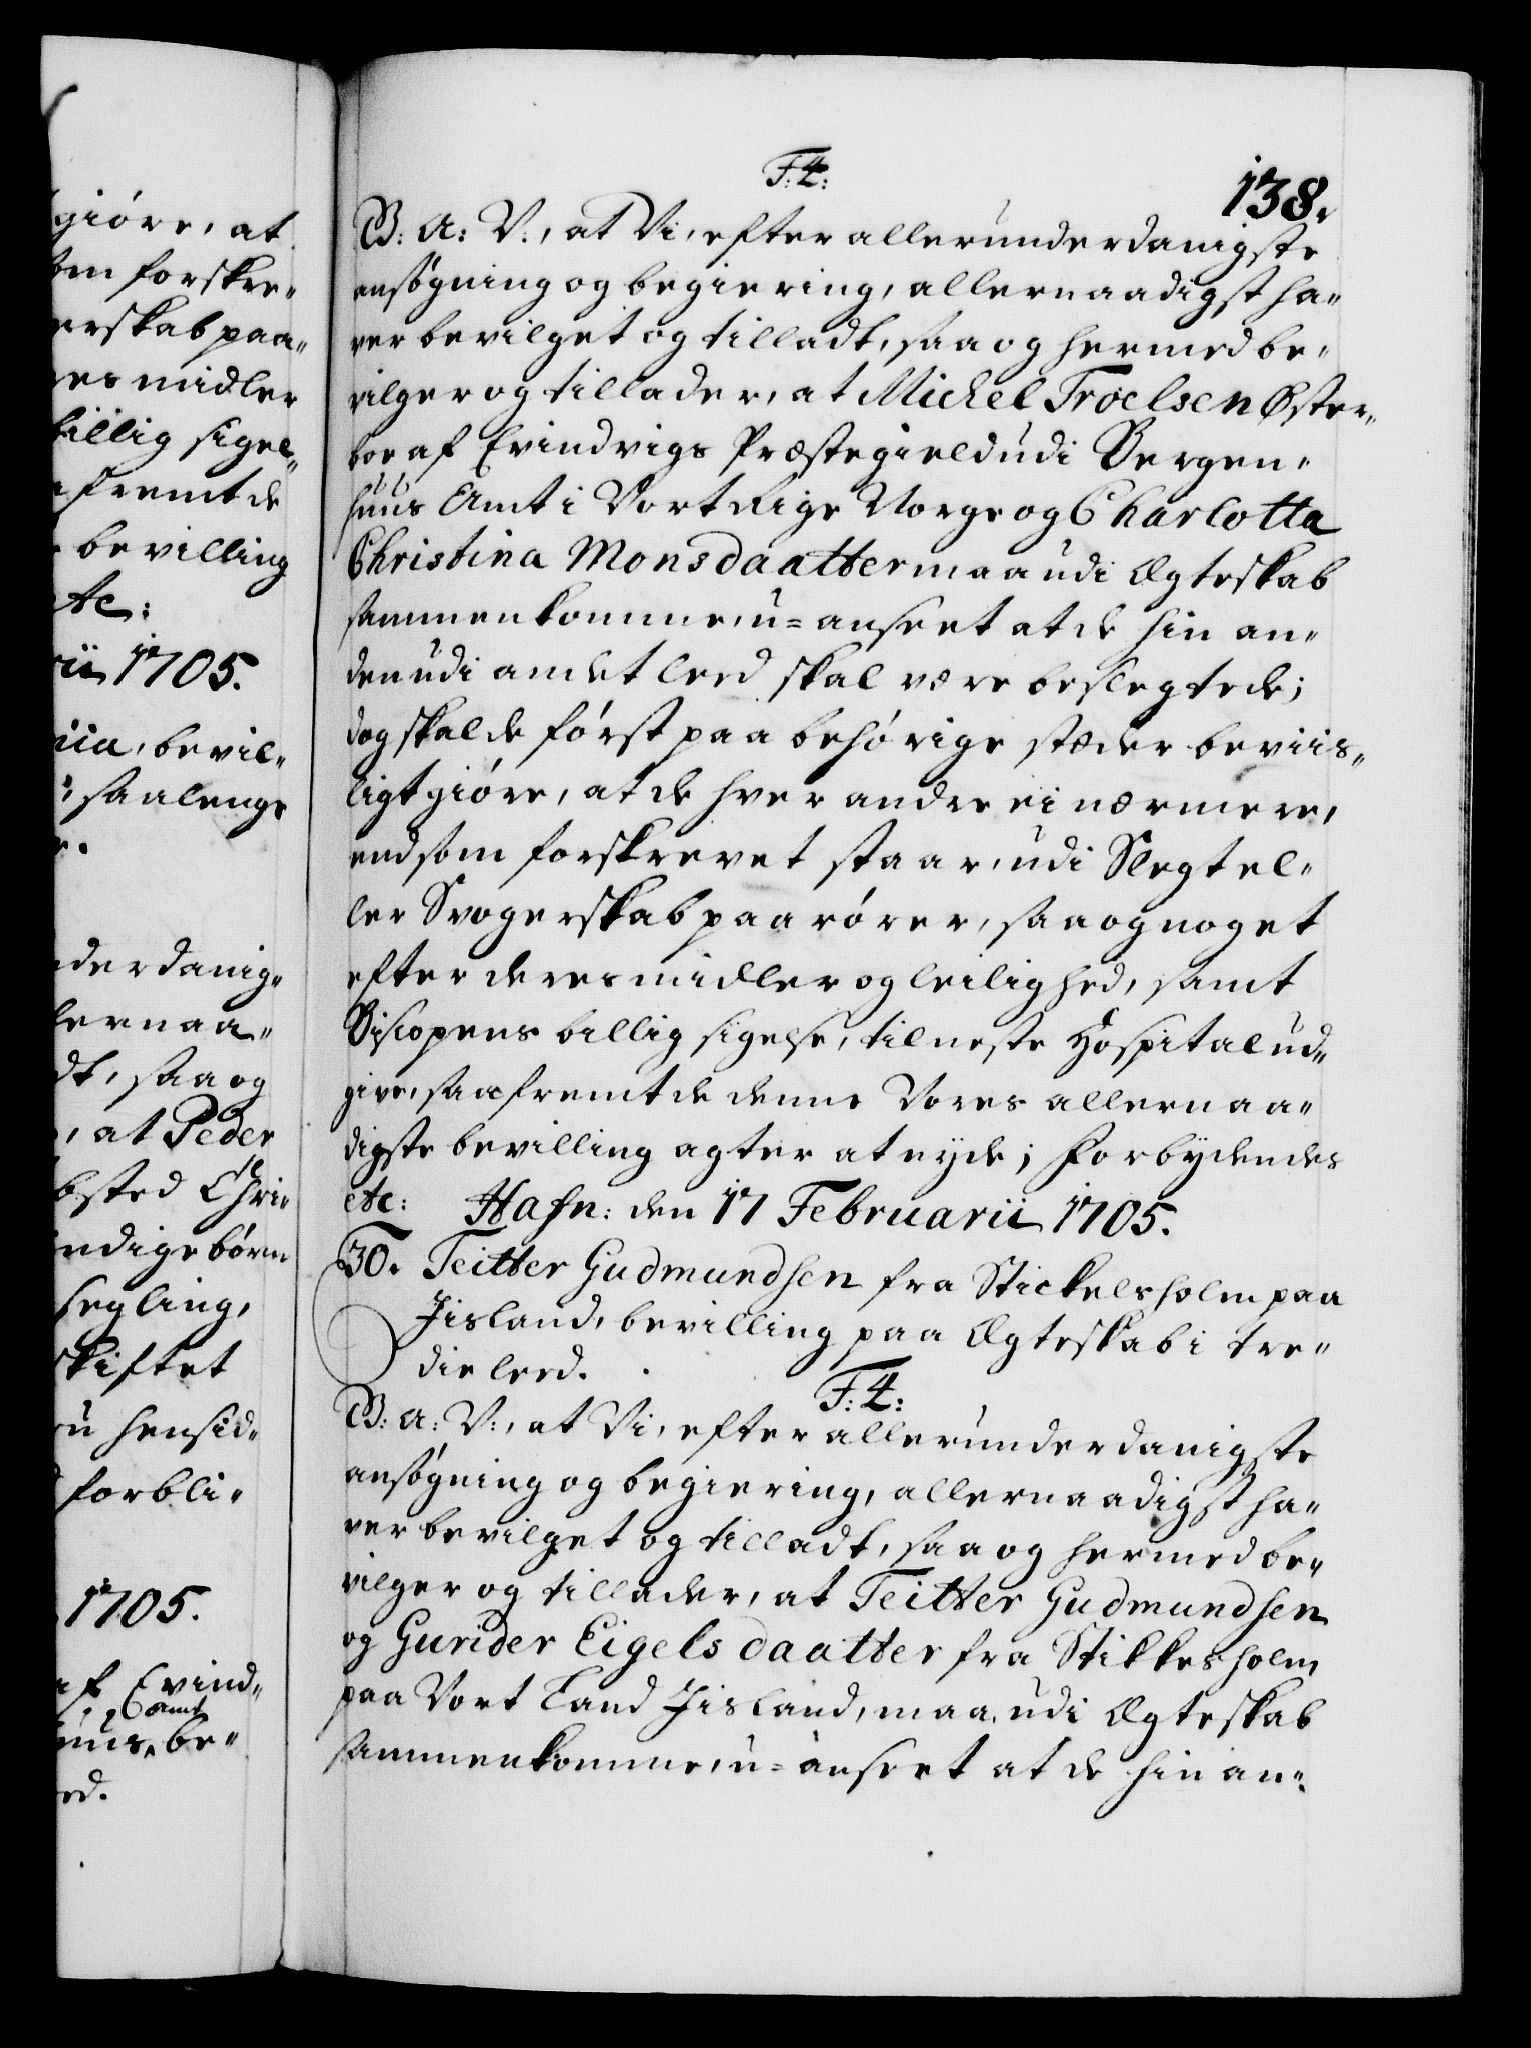 giöre, at
forskre-
erskab paa-
es midler
billig sigel-
fremt de
bevilling
etc:
rii 1705.
bevil-
, saalenge
derdanig-
lernaa-
dt, saa og
, at Peder
bsted Chri-
ndige börn
segling,
skiftet
hensid-
forbli-
1705.
af Evind-
Amt
uus, be-
ed.
138.
F: 4:
G: A: V:, at Vi, efter allerunderdanigste
ansögning og begiering, allernaadigst ha-
ver bevilget og tilladt, saa og hermed be-
vilger og tillader, at Michel Troelsen Öster-
boe af Evindvigs Præstegield udi Bergen-
huus Amt i Vort Rige Norge og Charlotta
Christina Monsdaatter maa udi Ægteskab
sammenkomme, u=anseet at de hin an-
den udi andet leed skal være beslegtede;
dog skal de först paa behörige stæder beviis-
ligt giöre, at de hver andre ei nærmere,
end som forskrevet staar, udi Slegt el-
ler Svogerskab paarörer, saa og noget
efter deres midler og leilighed, samt
Biscopens billig sigelse, til neste Hospital ud-
give, saafremt de denne Vores allernaa-
digste bevilling agter at nyde; Forbydendes
etc: Hafn: den 17 Februarii 1705.
30. Teitter Gudmundsen fra Stickelsholm paa
Jisland, bevilling paa Ægteskab i tre-
die leed.
F: 4:
G: A: V:, at Vi, efter allerunderdanigste
ansögning og begiering, allernaadigst ha-
ver bevilget og tilladt, saa og hermed be-
vilger og tillader, at Teitter Gudmundsen
og Gurider Eigelsdaatter fra Stikkesholm
paa Vort Land Jisland, maa udi Ægteskab
sammenkomme, u=anseet at de hin an-